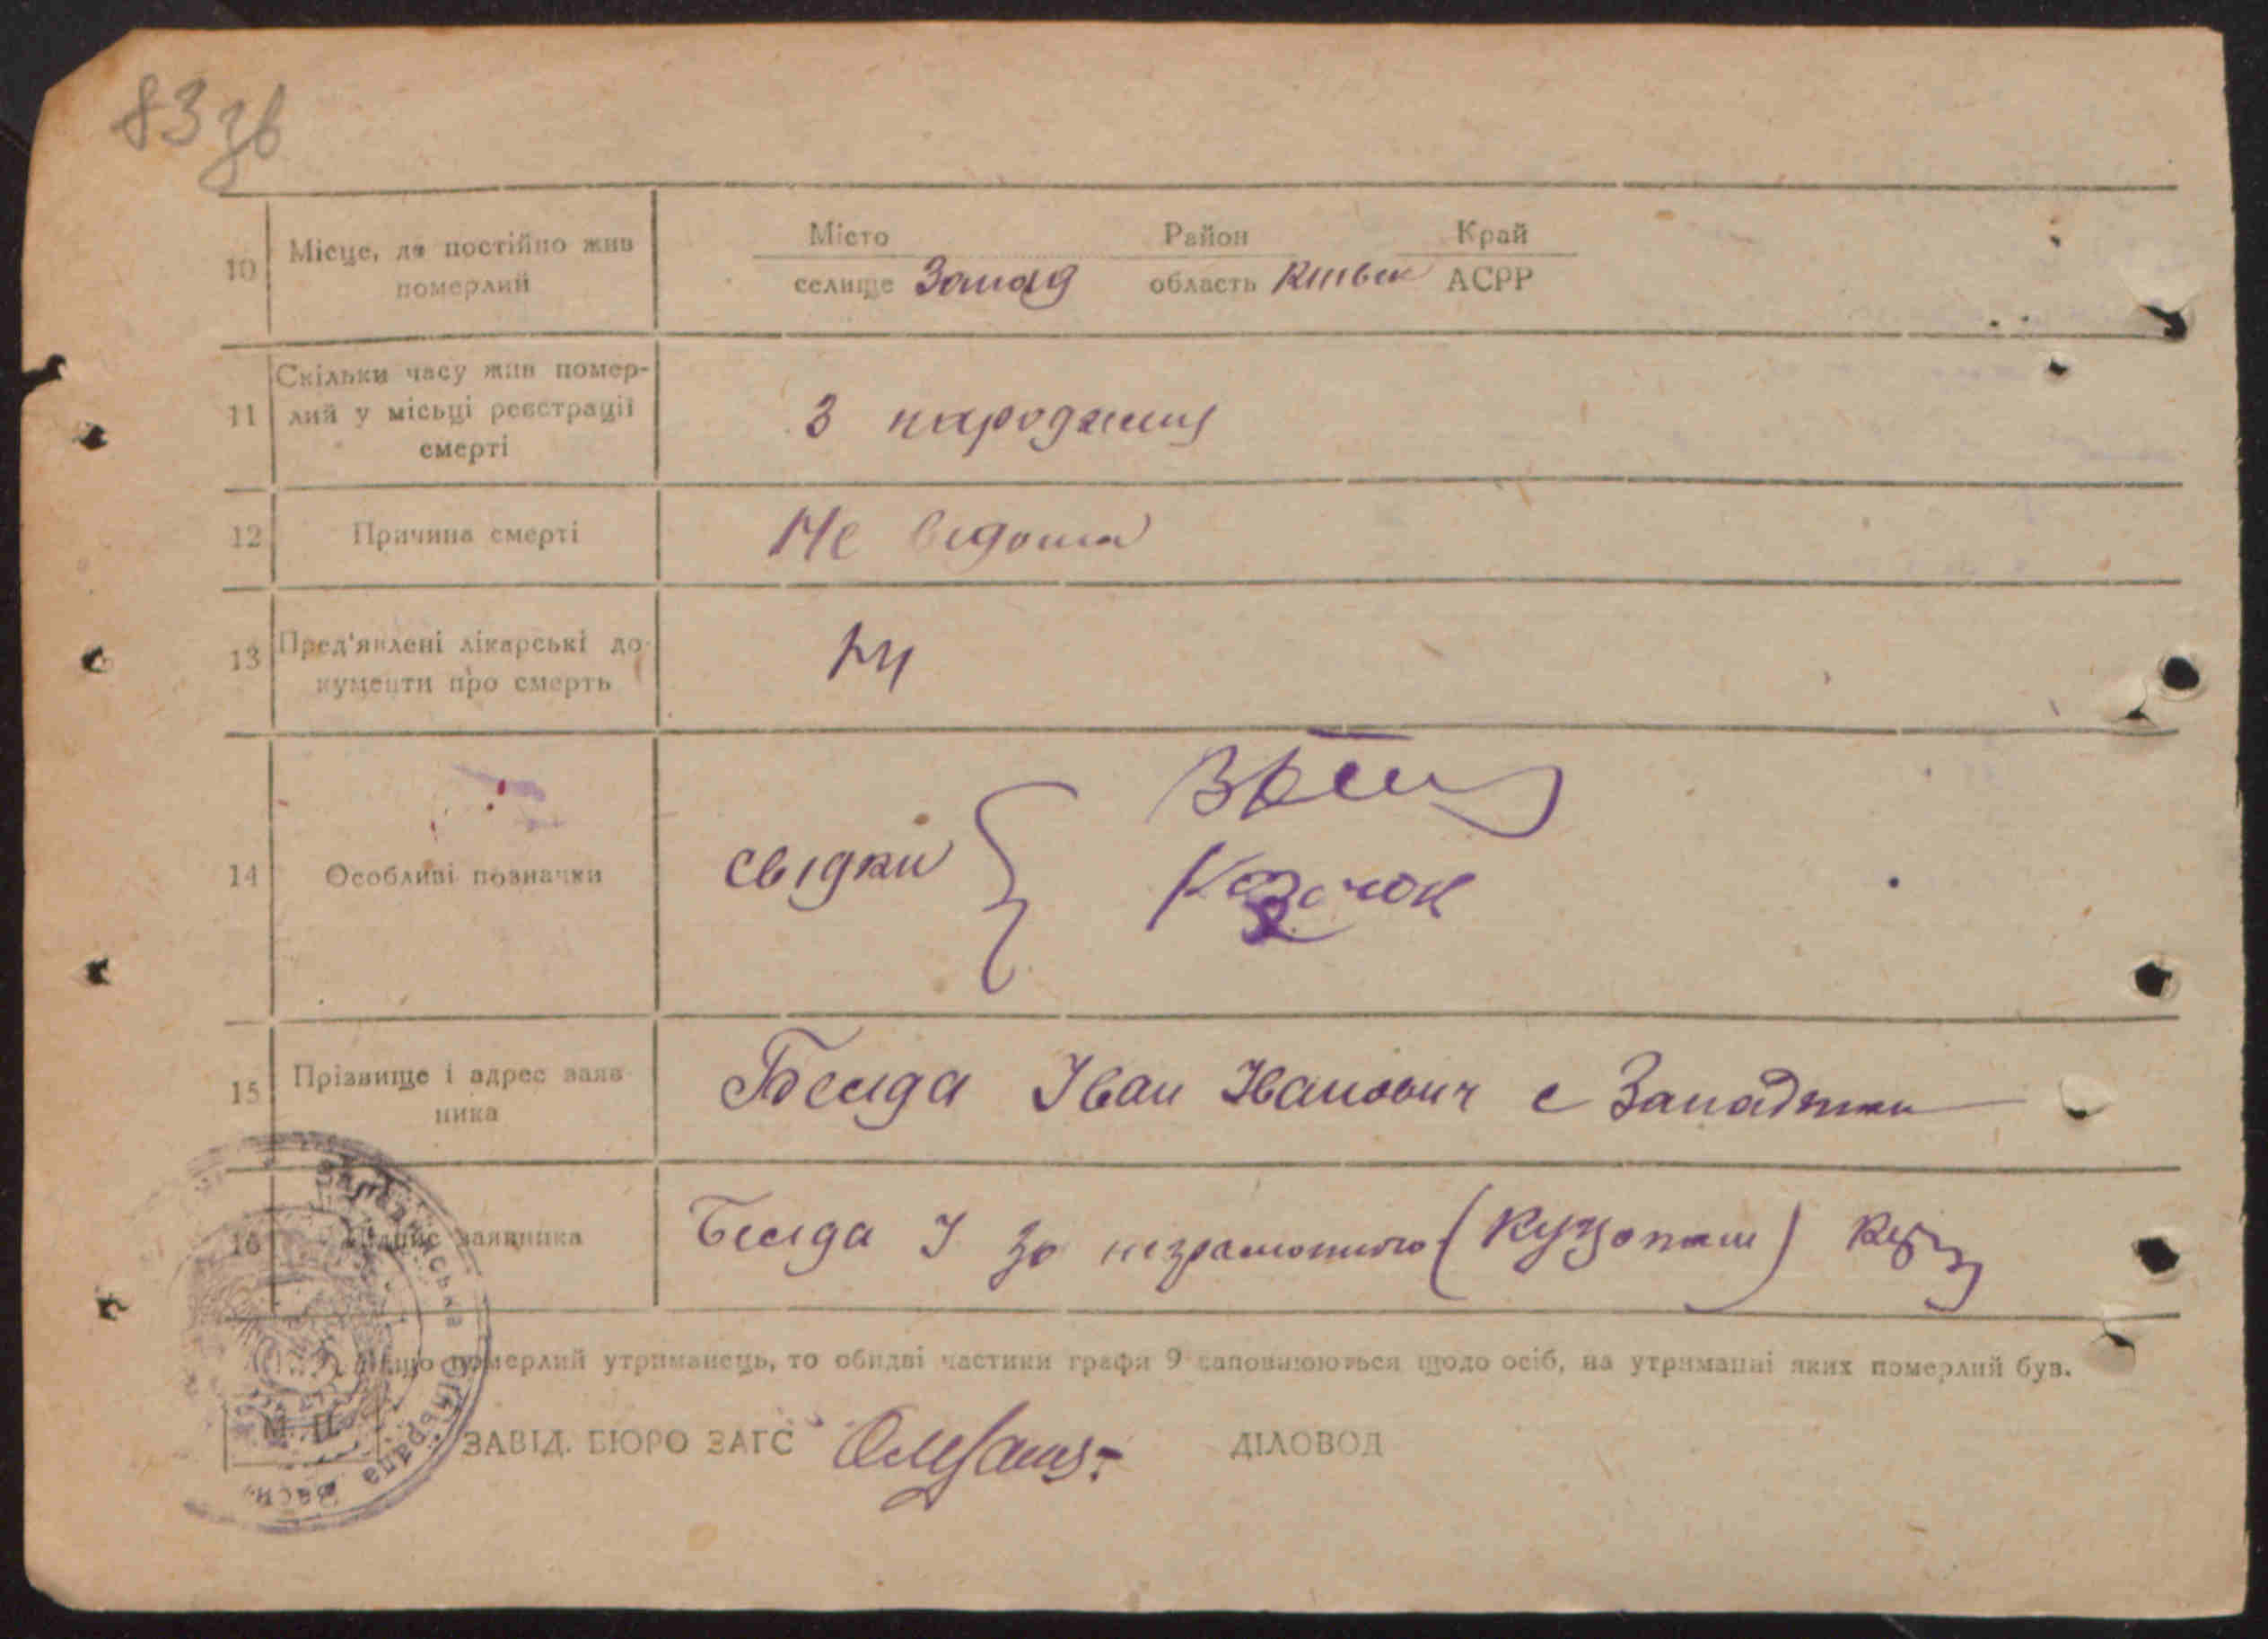 83 зв
Місто Район Край
10 Місце, де постійно жив померлий
селище Запад область Київськ АСРР
11 Скільки часу жив помер-
лий у місьці реєстрації
смерті
З народженя
12 Причина смерті Не відома
13 Пред'явлені лікарські до-
кументи про смерть
14 Особливі позначки свідки
Козачок
15 Прізвище і адрес заяв-
ника
Беседа Іван Іванович с Западинки
16 Підпис заявника Беседа І за неграмотного
Якщо померлий утриманець, то обидві частини графи 9 заповнюються щодо осіб, на утриманні яких померлий був.
М. П.
ЗАВІД. БЮРО ЗАГС ДІЛОВОД
Западинська сільрада Васи